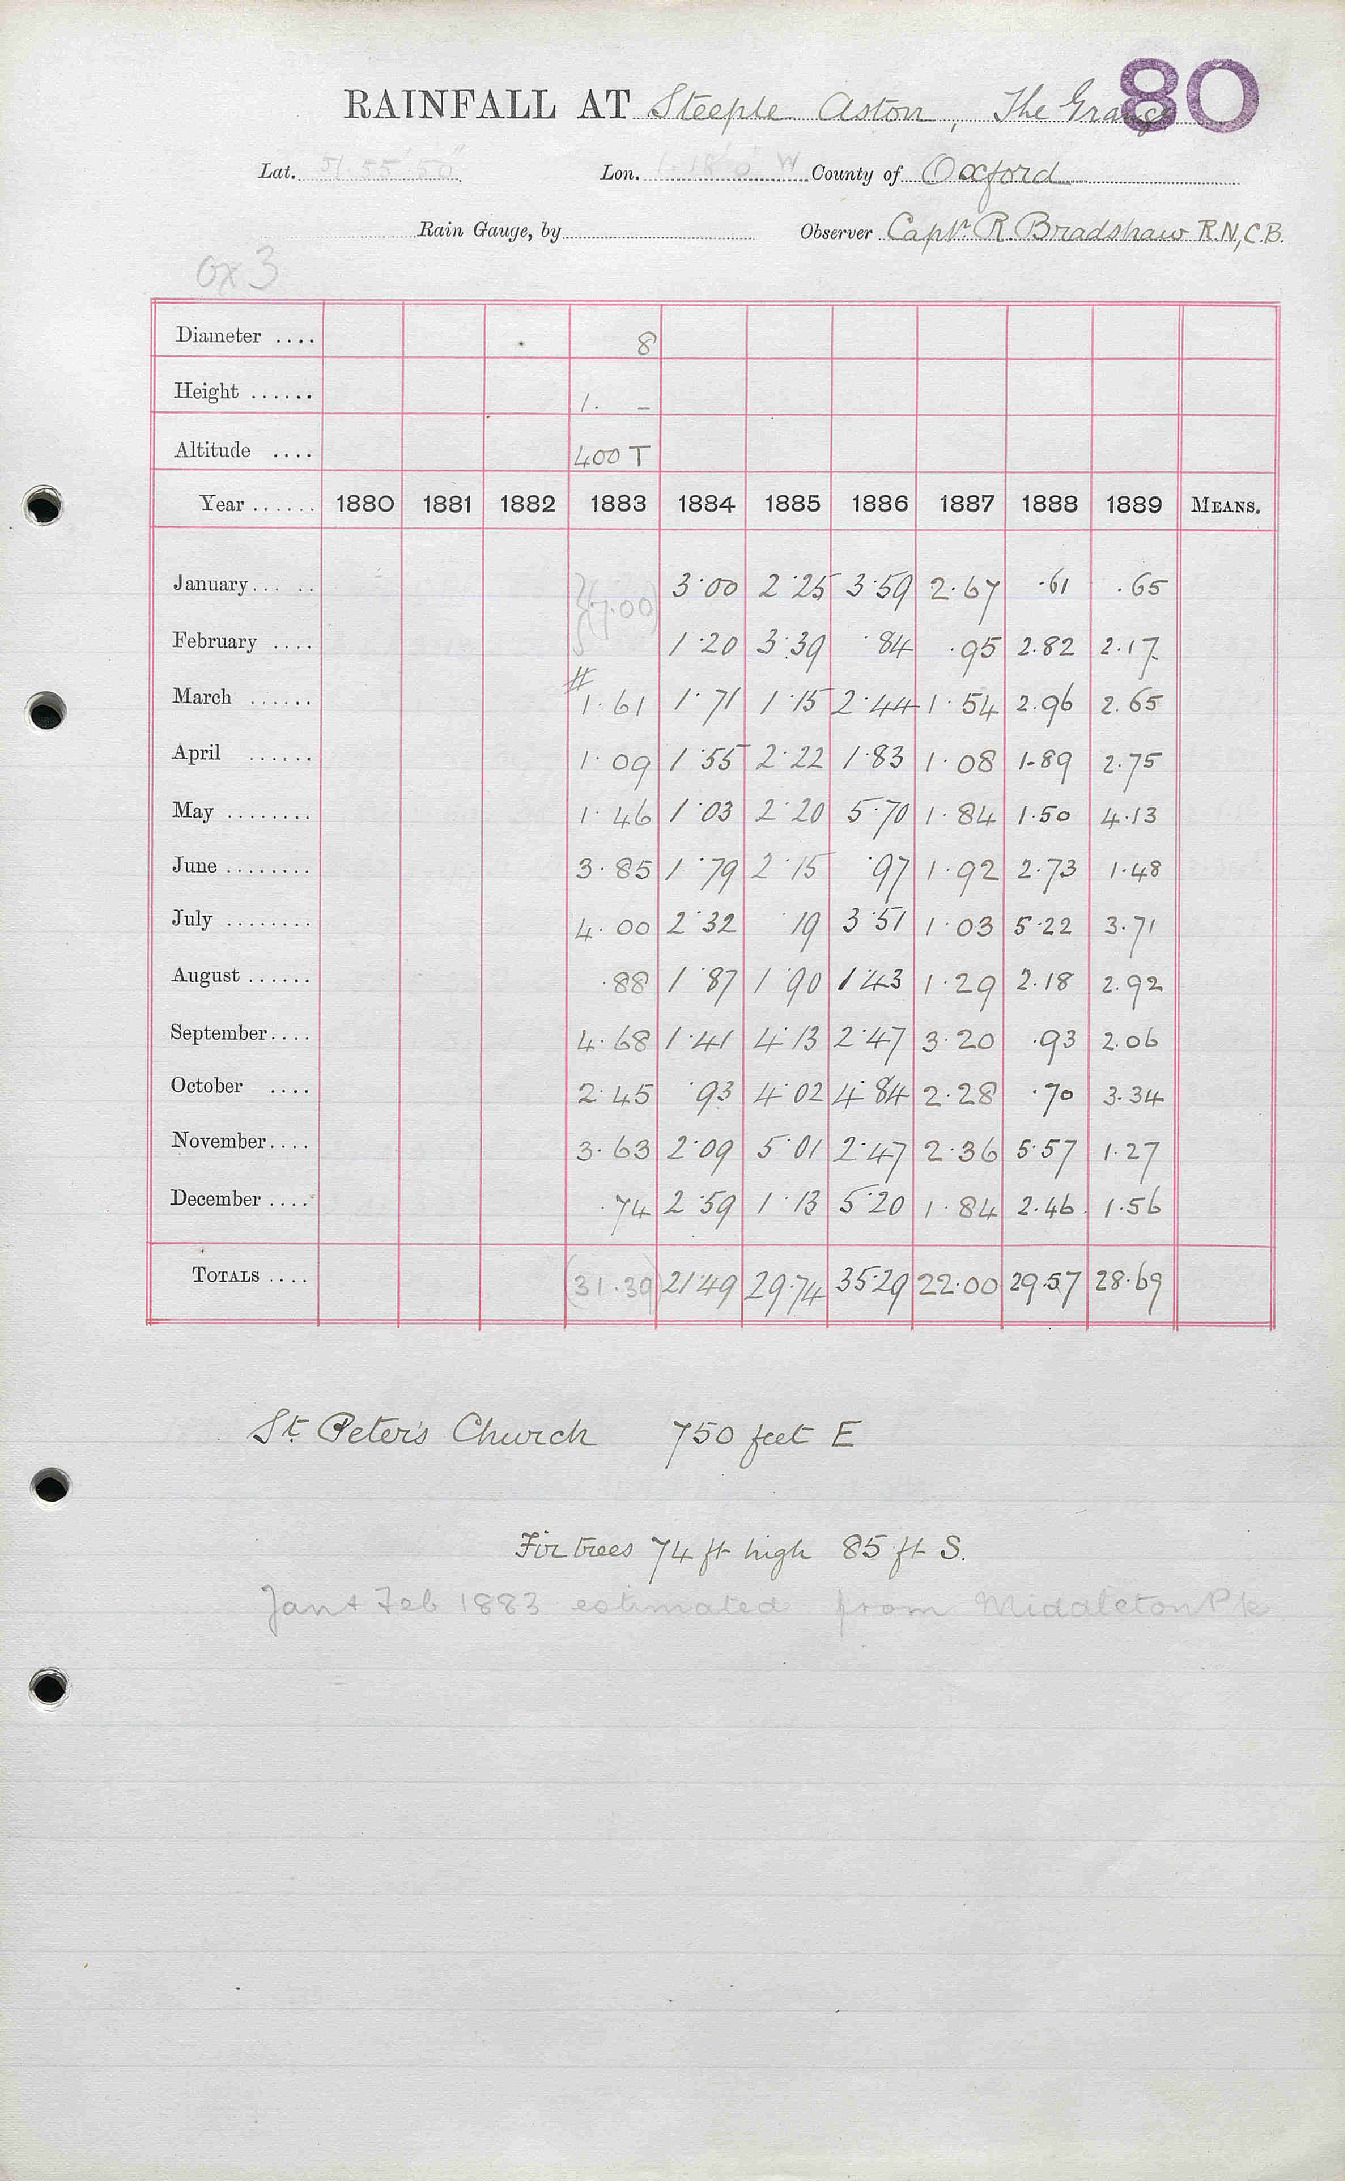 80
RAINFALL AT Steeple Aston, The Grange
Lat. 51 55' 50" Lon. 1-18' 0" W County of Oxford
Rain Gauge, by Observer Captn. R. Bradshaw R.N., C.B.
Ox 3
Diameter .... 8
Height ...... 1. –
Altitude .... 400 T
Year ...... 1880 1881 1882 1883 1884 1885 1886 1887 1888 1889 MEANS.
January... .. }(7.00) 3.00 2.25 3.59 2.67 .61 .65
February .... 1.20 3.39 .84 .95 2.82 2.17
March ...... # 1.61 1.71 1.15 2.44 1.54 2.96 2.65
April ...... 1.09 1.55 2.22 1.83 1.08 1.89 2.75
May ........ 1.46 1.03 2.20 5.70 1.84 1.50 4.13
June ........ 3.85 1.79 2.15 .97 1.92 2.73 1.48
July ........ 4.00 2.32 19 3.51 1.03 5.22 3.71
August ...... .88 1.87 1.90 1.43 1.29 2.18 2.92
September.... 4.68 1.41 4.13 2.47 3.20 .93 2.06
October .... 2.45 .93 4.02 4.84 2.28 .70 3.34
November.... 3.63 2.09 5.01 2.47 2.36 5.57 1.27
December .... .74 2.59 1.13 5.20 1.84 2.46 1.56
TOTALS .... (31.39) 21.49 29.74 35.29 22.00 29.57 28.69
St. Peter's Church 750 feet E
Fir trees 74 ft high 85 ft S.
Jan & Feb 1883 estimated from Middleton Pk